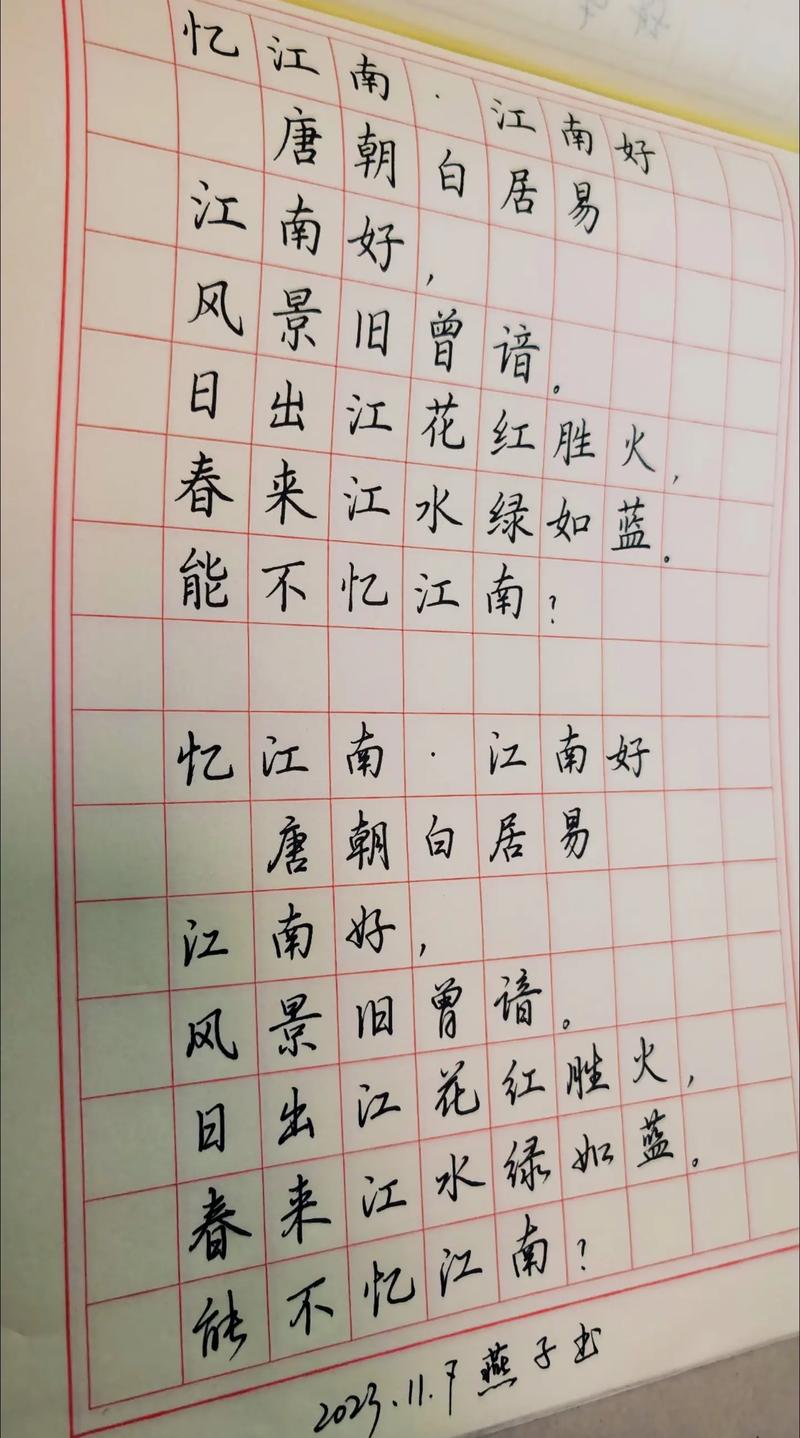 忆江南·江南好
唐朝白居易
江南好,
风景旧曾谙。
日出江花红胜火,
春来江水绿如蓝。
能不忆江南?
忆江南·江南好
唐朝白居易
江南好,
风景旧曾谙。
日出江花红胜火,
春来江水绿如蓝。
能不忆江南?
2023.11.9 燕子书